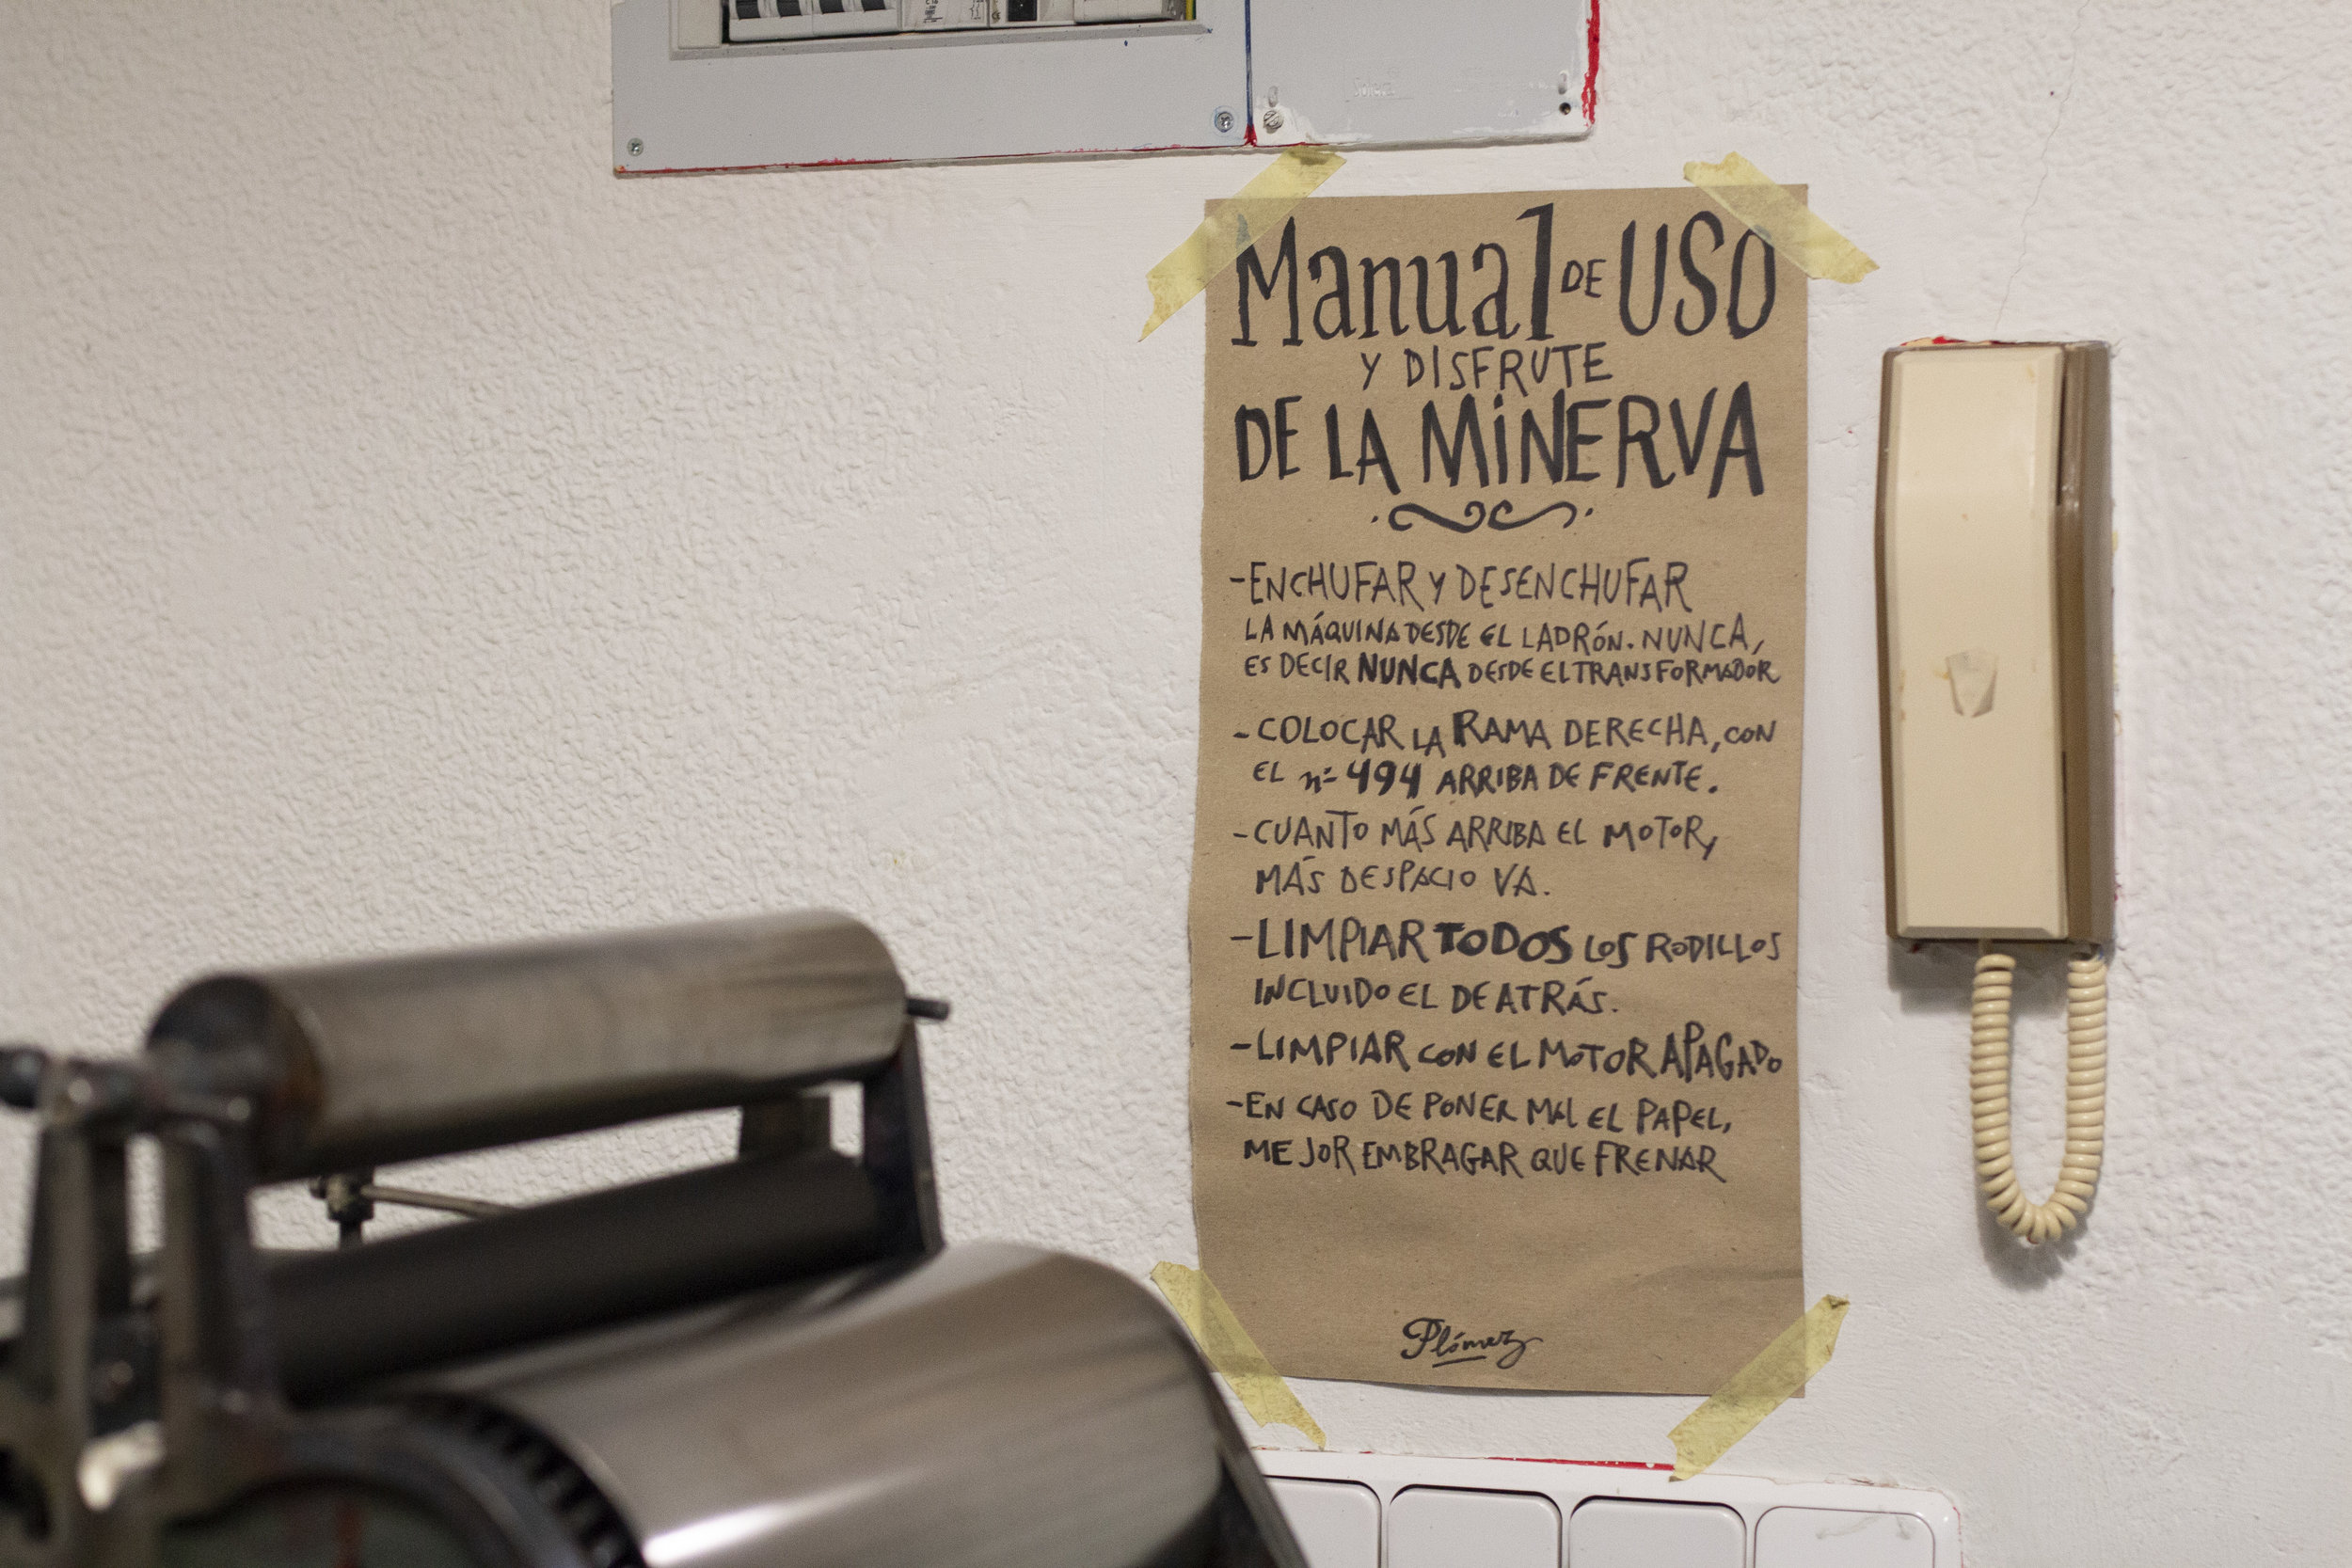 Manual DE USO
Y DISFRUTE
DE LA MiNERVA
-ENCHUFAR Y DESENCHUFAR
LA MÁQUINA DESDE EL LADRÓN. NUNCA,
ES DECIR NUNCA DESDE EL TRANSFORMADOR
-COLOCAR LA RAMA DERECHA, CON
EL nº 494 ARRIBA DE FRENTE.
-CUANTO MÁS ARRIBA EL MOTOR,
MÁS DESPACIO VA.
-LIMPIAR TODOS LOS RODILLOS
INCLUIDO EL DE ATRÁS.
-LIMPIAR CON EL MOTOR APAGADO
-EN CASO DE PONER MAL EL PAPEL,
MEJOR EMBRAGAR QUE FRENAR
Plómez